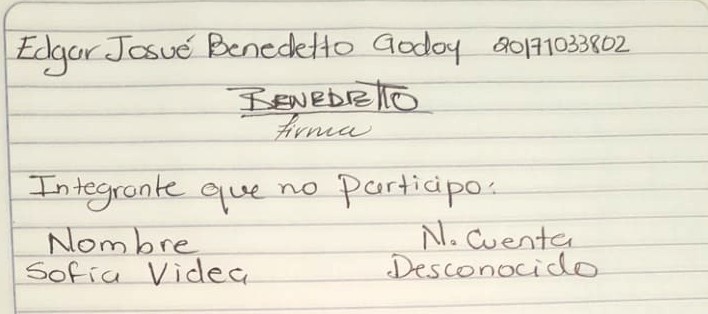 Edgar Josué Benedetto Godoy 20171033802
BENEDETTO
firma
Integrante que no participo:
Nombre N. Cuenta
Sofia Videa Desconocido